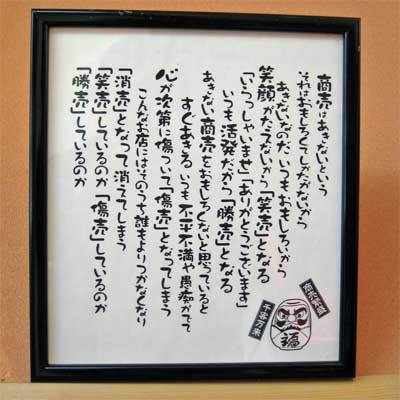 商売はあきないという
それはおもしろくてしかたがないから
あきないなのだ いつもおもしろいから
笑顔がたえないから「笑売」となる
「いらっしゃいませ」「ありがとうございます」
いつも活発だから「勝売」となる
あきない商売をおもしろくないと思っていると
すぐあきる いつも不平不満や愚痴がでて
心が次第に傷ついて「傷売」となってしまう
こんなお店にはそのうち誰もよりつかなくなり
「消売」となって消えてしまう
「笑売」しているのか 「傷売」しているのか
「勝売」しているのか
商売繁盛
千客万来
福